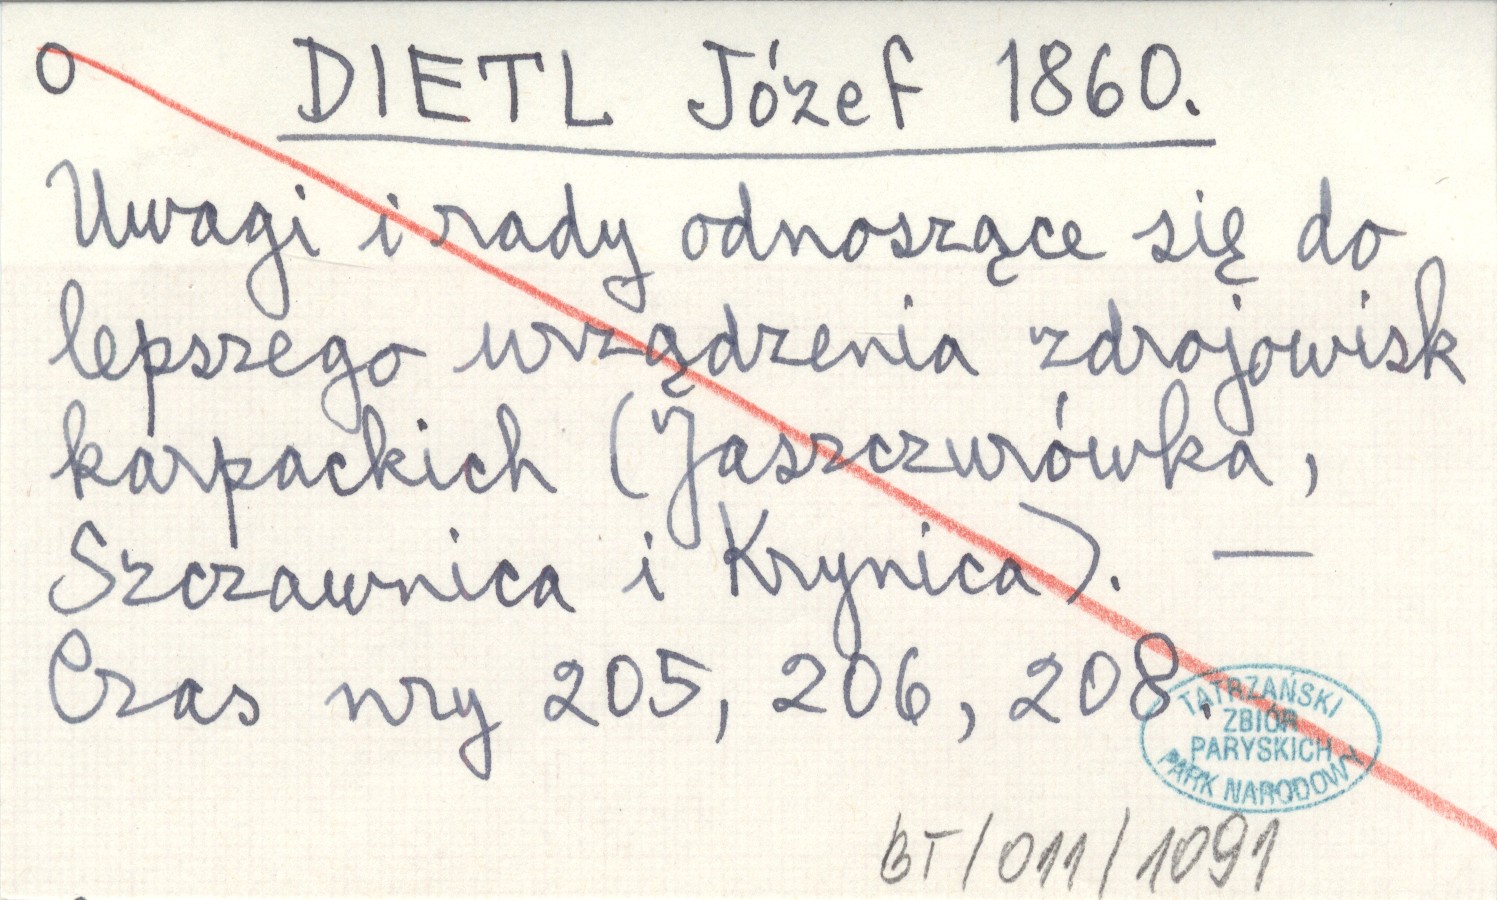 O DIETL Józef 1860.
Uwagi i rady odnoszące się do
lepszego urządzenia zdrojowisk
karpackich (Jaszczurówka,
Szczawnica i Krynica). —
Czas nry 205, 206, 208.
TATRZAŃSKI
ZBIÓR
PARYSKICH
PARK NARODOWY
BT/011/1091